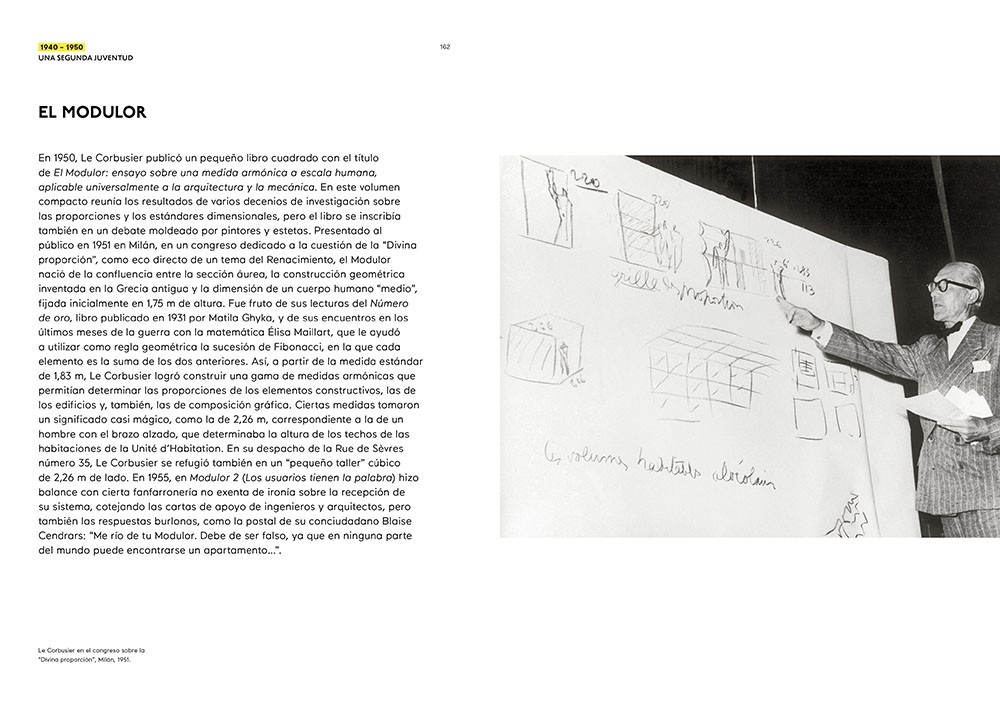 1940 – 1950
UNA SEGUNDA JUVENTUD
162
EL MODULOR
En 1950, Le Corbusier publicó un pequeño libro cuadrado con el título
de El Modulor: ensayo sobre una medida armónica a escala humana,
aplicable universalmente a la arquitectura y la mecánica. En este volumen
compacto reunía los resultados de varios decenios de investigación sobre
las proporciones y los estándares dimensionales, pero el libro se inscribía
también en un debate moldeado por pintores y estetas. Presentado al
público en 1951 en Milán, en un congreso dedicado a la cuestión de la “Divina
proporción”, como eco directo de un tema del Renacimiento, el Modulor
nació de la confluencia entre la sección áurea, la construcción geométrica
inventada en la Grecia antigua y la dimensión de un cuerpo humano “medio”,
fijada inicialmente en 1,75 m de altura. Fue fruto de sus lecturas del Número
de oro, libro publicado en 1931 por Matila Ghyka, y de sus encuentros en los
últimos meses de la guerra con la matemática Élisa Maillart, que le ayudó
a utilizar como regla geométrica la sucesión de Fibonacci, en la que cada
elemento es la suma de los dos anteriores. Así, a partir de la medida estándar
de 1,83 m, Le Corbusier logró construir una gama de medidas armónicas que
permitían determinar las proporciones de los elementos constructivos, las de
los edificios y, también, las de composición gráfica. Ciertas medidas tomaron
un significado casi mágico, como la de 2,26 m, correspondiente a la de un
hombre con el brazo alzado, que determinaba la altura de los techos de las
habitaciones de la Unité d’Habitation. En su despacho de la Rue de Sèvres
número 35, Le Corbusier se refugió también en un “pequeño taller” cúbico
de 2,26 m de lado. En 1955, en Modulor 2 (Los usuarios tienen la palabra) hizo
balance con cierta fanfarronería no exenta de ironía sobre la recepción de
su sistema, cotejando las cartas de apoyo de ingenieros y arquitectos, pero
también las respuestas burlonas, como la postal de su conciudadano Blaise
Cendrars: “Me río de tu Modulor. Debe de ser falso, ya que en ninguna parte
del mundo puede encontrarse un apartamento...”.
Le Corbusier en el congreso sobre la
“Divina proporción”, Milán, 1951.
220
220
226
183
113
grille des proportion
2.26
2.26
les volumes habitables alvéolaires